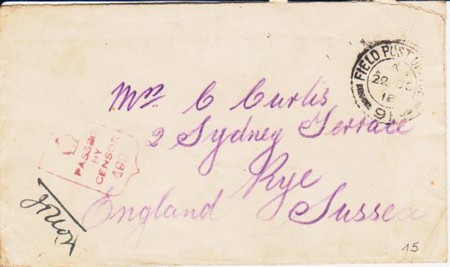 FIELD POST OFFICE
22
18
91
Mrs C Curtis
2 Sydney Terrace
Rye
England Sussex
PASSED
BY
CENSOR
15